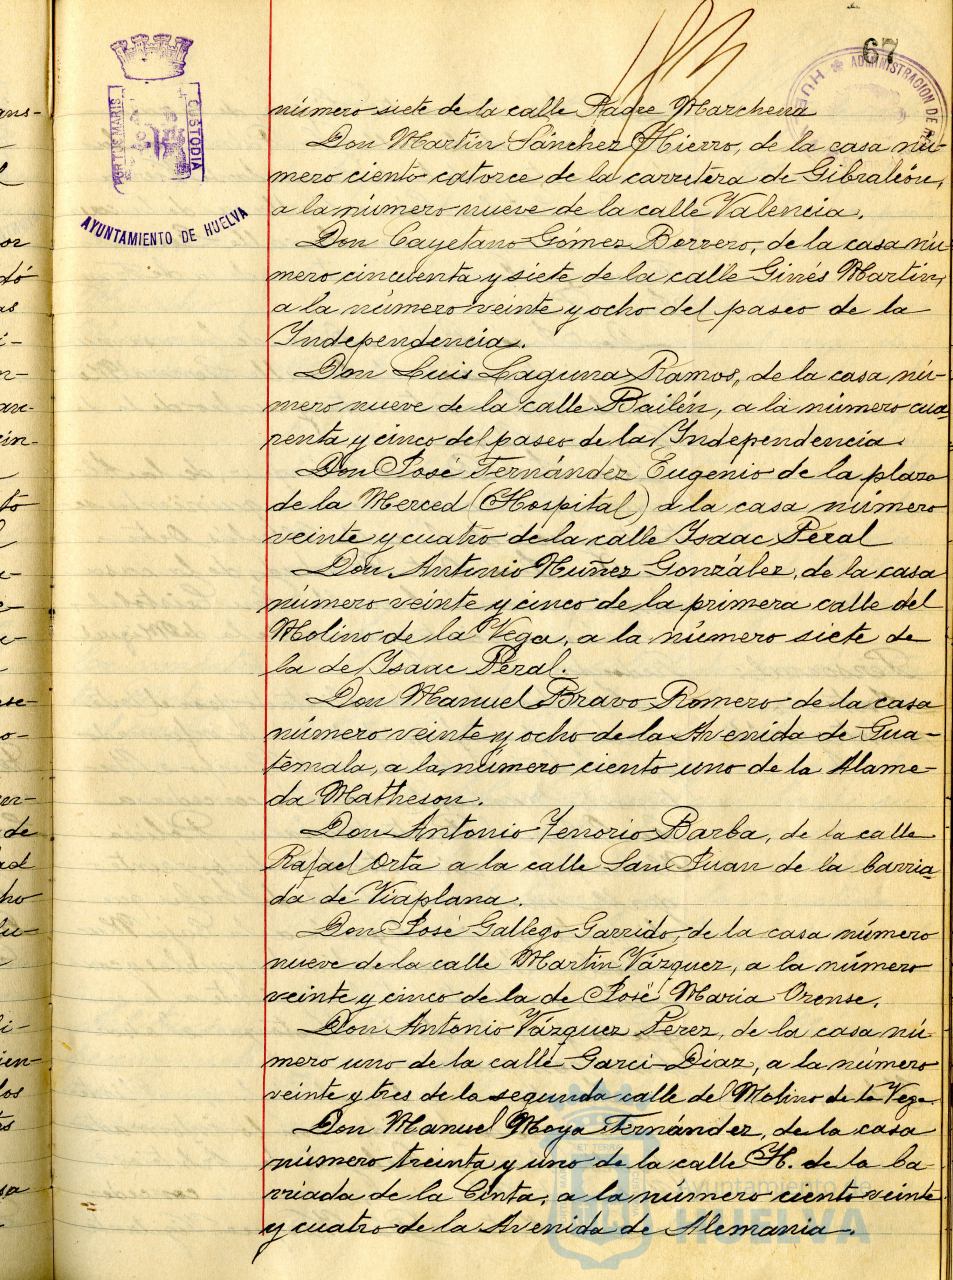 67
ADMINISTRACION DE
HUE
PORTUS MARIS
CUSTODIA
AYUNTAMIENTO DE HUELVA
número siete de la calle Padre Marchena
Don Martín Sánchez Hierro, de la casa nú-
mero ciento catorce de la carretera de Gibraleón,
a la número nueve de la calle Valencia.
Don Cayetano Gómez Borrero, de la casa nú-
mero cincuenta y siete de la calle Ginés Martín,
a la número veinte y ocho del paseo de la
Independencia.
Don Luis Laguna Ramos, de la casa nú-
mero nueve de la calle Bailén, a la número cua-
renta y cinco del paseo de la Independencia.
Don José Fernández Eugenio de la plaza
de la Merced (Hospital) a la casa número
veinte y cuatro de la calle Isaac Peral
Don Antonio Nuñez González, de la casa
número veinte y cinco de la primera calle del
Molino de la Vega, a la número siete de
la de Isaac Peral.
Don Manuel Bravo Romero de la casa
número veinte y ocho de la Avenida de Gua-
temala, a la número ciento uno de la Alame-
da Matheson.
Don Antonio Tenorio Barba, de la calle
Rafael Orta a la calle San Juan de la barria-
da de Viaplana.
Don José Gallego Garrido, de la casa número
nueve de la calle Martín Vázquez, a la número
veinte y cinco de la de José María Orense.
Don Antonio Vázquez Pérez, de la casa nú-
mero uno de la calle Garci-Díaz, a la número
veinte y tres de la segunda calle del Molino de la Vega.
Don Manuel Moya Fernández, de la casa
número treinta y uno de la calle H. de la ba-
rriada de la Cinta, a la número ciento veinte
y cuatro de la Avenida de Alemania.
Ayuntamiento de
HUELVA